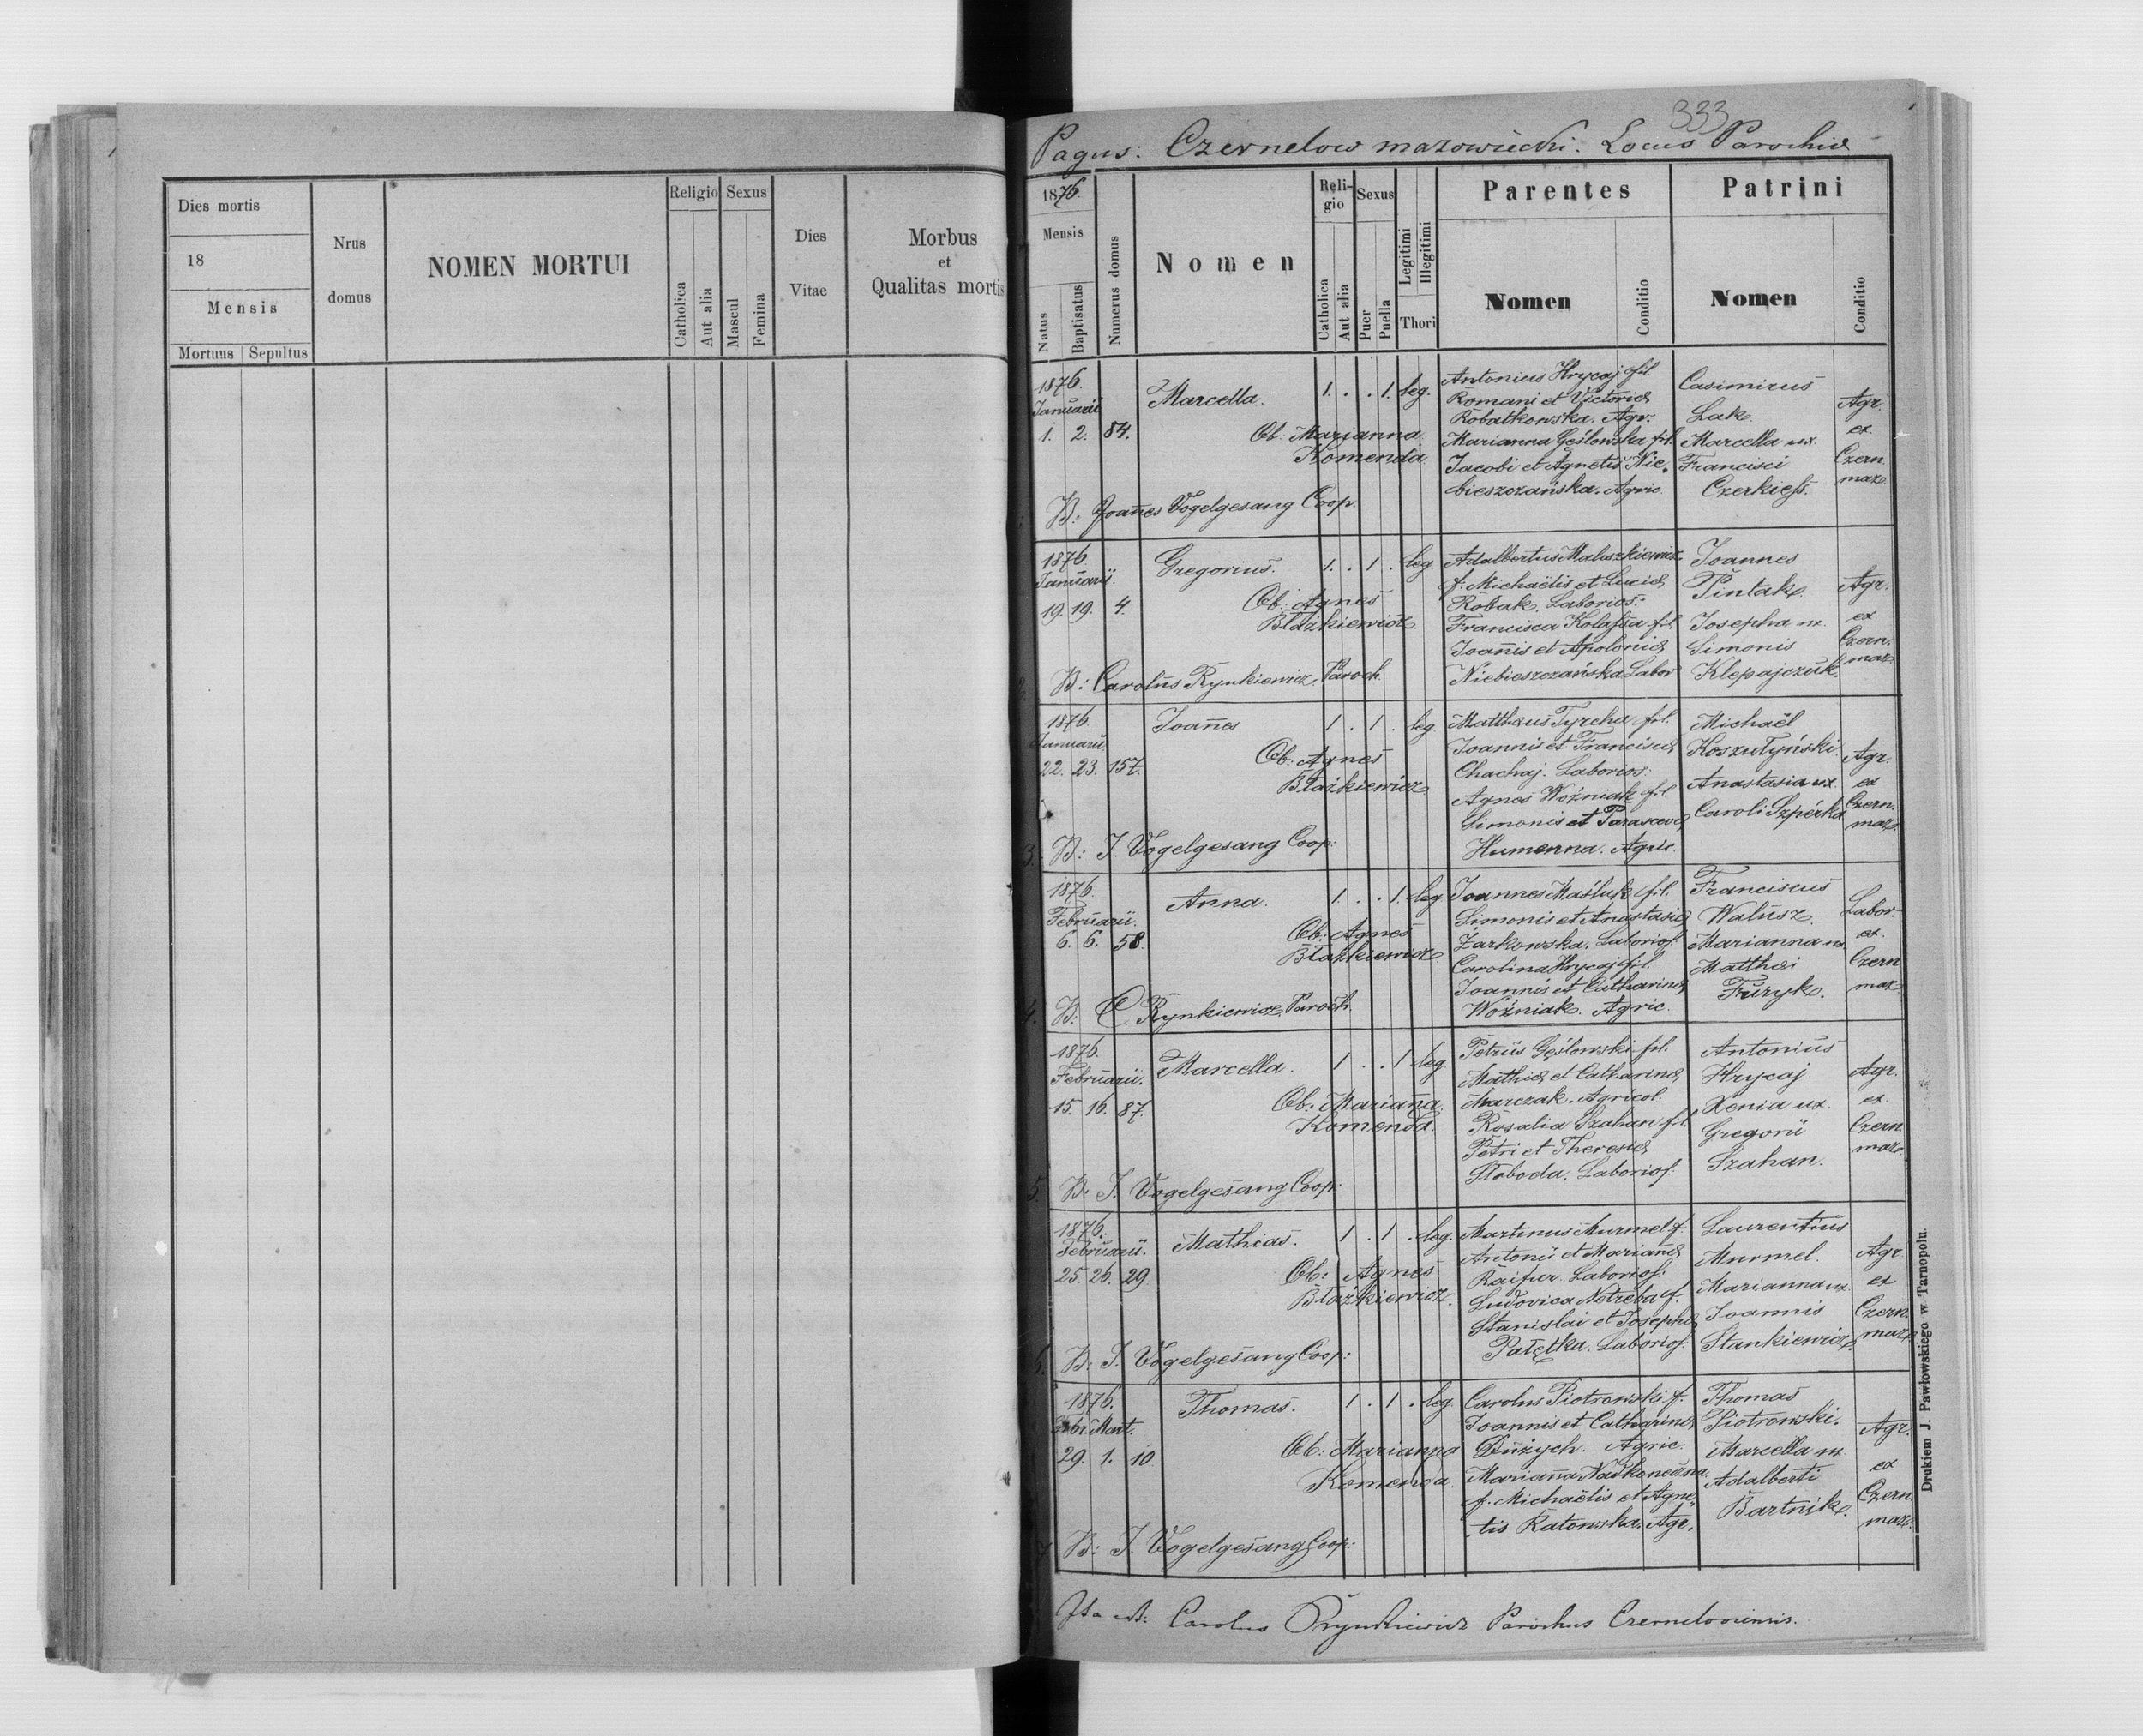 Dies mortis
18
Mensis
Mortuus Sepultus
Nrus
domus
NOMEN MORTUI
Religio Sexus
Catholica
Aut alia
Mascul
Femina
Dies
Vitae
Morbus
et
Qualitas mortis
333
Pagus: Czernelow mazowiecki. Locus Parochiæ
1876.
Mensis
Natus
Baptisatus
Numerus domus
Nomen
Reli-
gio
Sexus
Catholica
Aut alia
Puer
Puella
Legitimi
Illegitimi
Thori
Parentes
Nomen
Conditio
Patrini
Nomen
Conditio
1876.
Januarii
1. 2. 84.
Marcella.
1. . . 1. leg.
Ob: Marianna
Komenda
Antonius Hrycaj fil
Romani et Victoriæ
Robatkowska. Agr.
Marianna Gęślowska fil.
Jacobi et Agnetis Nie-
bieszczańska. Agric.
Casimirus
Lak.
Marcella ux.
Francisci
Czerkieß.
Agr.
ex
Czern.
maz.
B: Joannes Vogelgesang Coop.
1876.
Januarii.
19. 19. 4.
Gregorius.
1. . 1 . leg.
Ob: Agnes
Błażkiewicz.
Adalbertus Maliszkiewicz
f. Michaëlis et Luciæ
Robak. Laborios:
Francisca Kolassa fil.
Joannis et Apoloniæ
Niebieszczańska Labor.
Joannes
Pintak.
Josepha ux.
Simonis
Klepajczuk.
Agr.
ex
Czern.
maz.
B: Carolus Rynkiewicz. Paroch.
1876.
Januarii
22. 23. 157.
Joannes
1 . 1 . leg
Ob: Agnes
Błażkiewicz
Matthæus Tyrcha fil.
Joannis et Franciscæ
Chachaj. Laborios:
Agnes Woźniak fil.
Simonis et Parascevæ
Humenna. Agric.
Michaël
Koszutyński.
Anastasia ux.
Caroli Szpérka
Agr.
ex
Czern.
maz.
3. B: J. Vogelgesang Coop:
1876.
Februarii.
6. 6. 58.
Anna.
1. . . 1. leg
Ob: Agnes
Błażkiewicz.
Joannes Maśluk fil.
Simonis et Anastasiæ
Żarkowska. Laborios:
Carolina Hrycaj fil.
Joannis et Catharinæ
Woźniak. Agric.
Franciscus
Walusz.
Marianna ux.
Matthæi
Furyk.
Labor.
ex.
Czern.
maz.
4. B: C. Rynkiewicz. Paroch.
1876.
Februarii.
15. 16. 87.
Marcella.
1 . . 1 leg
Ob: Marianna
Komenda.
Petrus Gęślowski fil.
Mathiæ et Catharinæ
Marczak. Agricol.
Rosalia Szahan fil.
Petri et Theresiæ
Słoboda. Laborios:
Antonius
Hrycaj
Xenia ux.
Gregorii
Szahan.
Agr.
ex.
Czern.
maz.
5. B: J. Vogelgesang Coop:
1876.
Februarii.
25. 26. 29
Mathias.
1 . 1 . leg.
Ob: Agnes
Błażkiewicz.
Martinus Murmel f.
Antonii et Mariannæ
Raifur. Laborios:
Ludovica Netreba f.
Stanislai et Josephæ
Pałętka. Laborios.
Laurentius
Murmel.
Marianna ux.
Joannis
Stankiewicz.
Agr.
ex
Czern.
maz.
6. B: J. Vogelgesang Coop:
1876.
Febr. Mart.
29. 1. 10
Thomas.
1 . 1 . leg.
Ob: Marianna
Komenda.
Carolus Piotrowski f.
Joannis et Catharinæ
Dużych. Agric.
Marianna Nadkoneczna
f. Michaëlis et Agne-
tis Ratowska. Agr.
Thomas
Piotrowski.
Marcella ux.
Adalberti
Bartnik.
Agr.
ex
Czern.
maz.
7. B: J. Vogelgesang Coop:
Ita est: Carolus Rynkiewicz Parochus Czerneloviensis.
Drukiem J. Pawłowskiego w Tarnopolu.